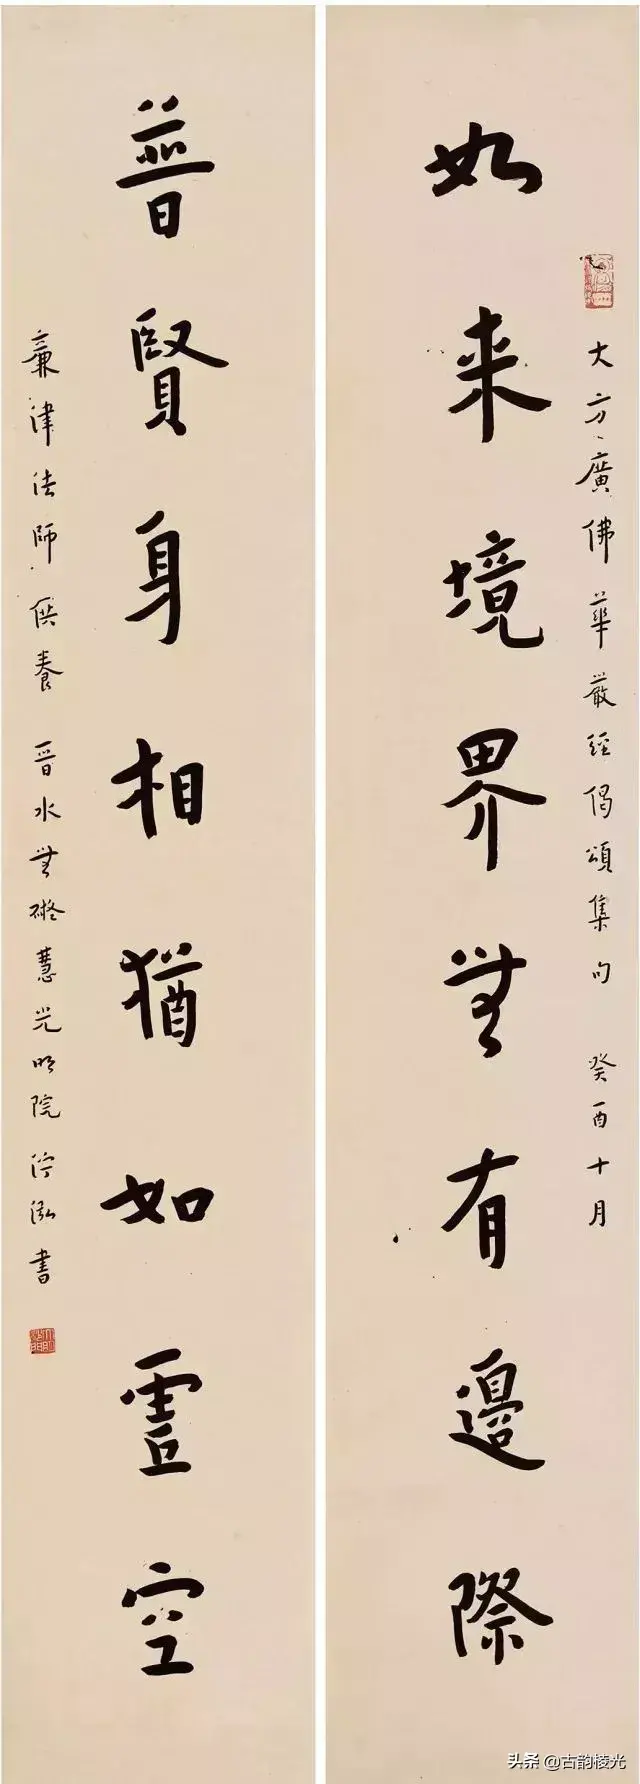 大方廣佛華嚴經偈頌集句 癸酉十月
如来境界無有邊際
普賢身相猶如虛空
津法師供養 晉水無礙慧光明院泓書
头条 @古韵棱光